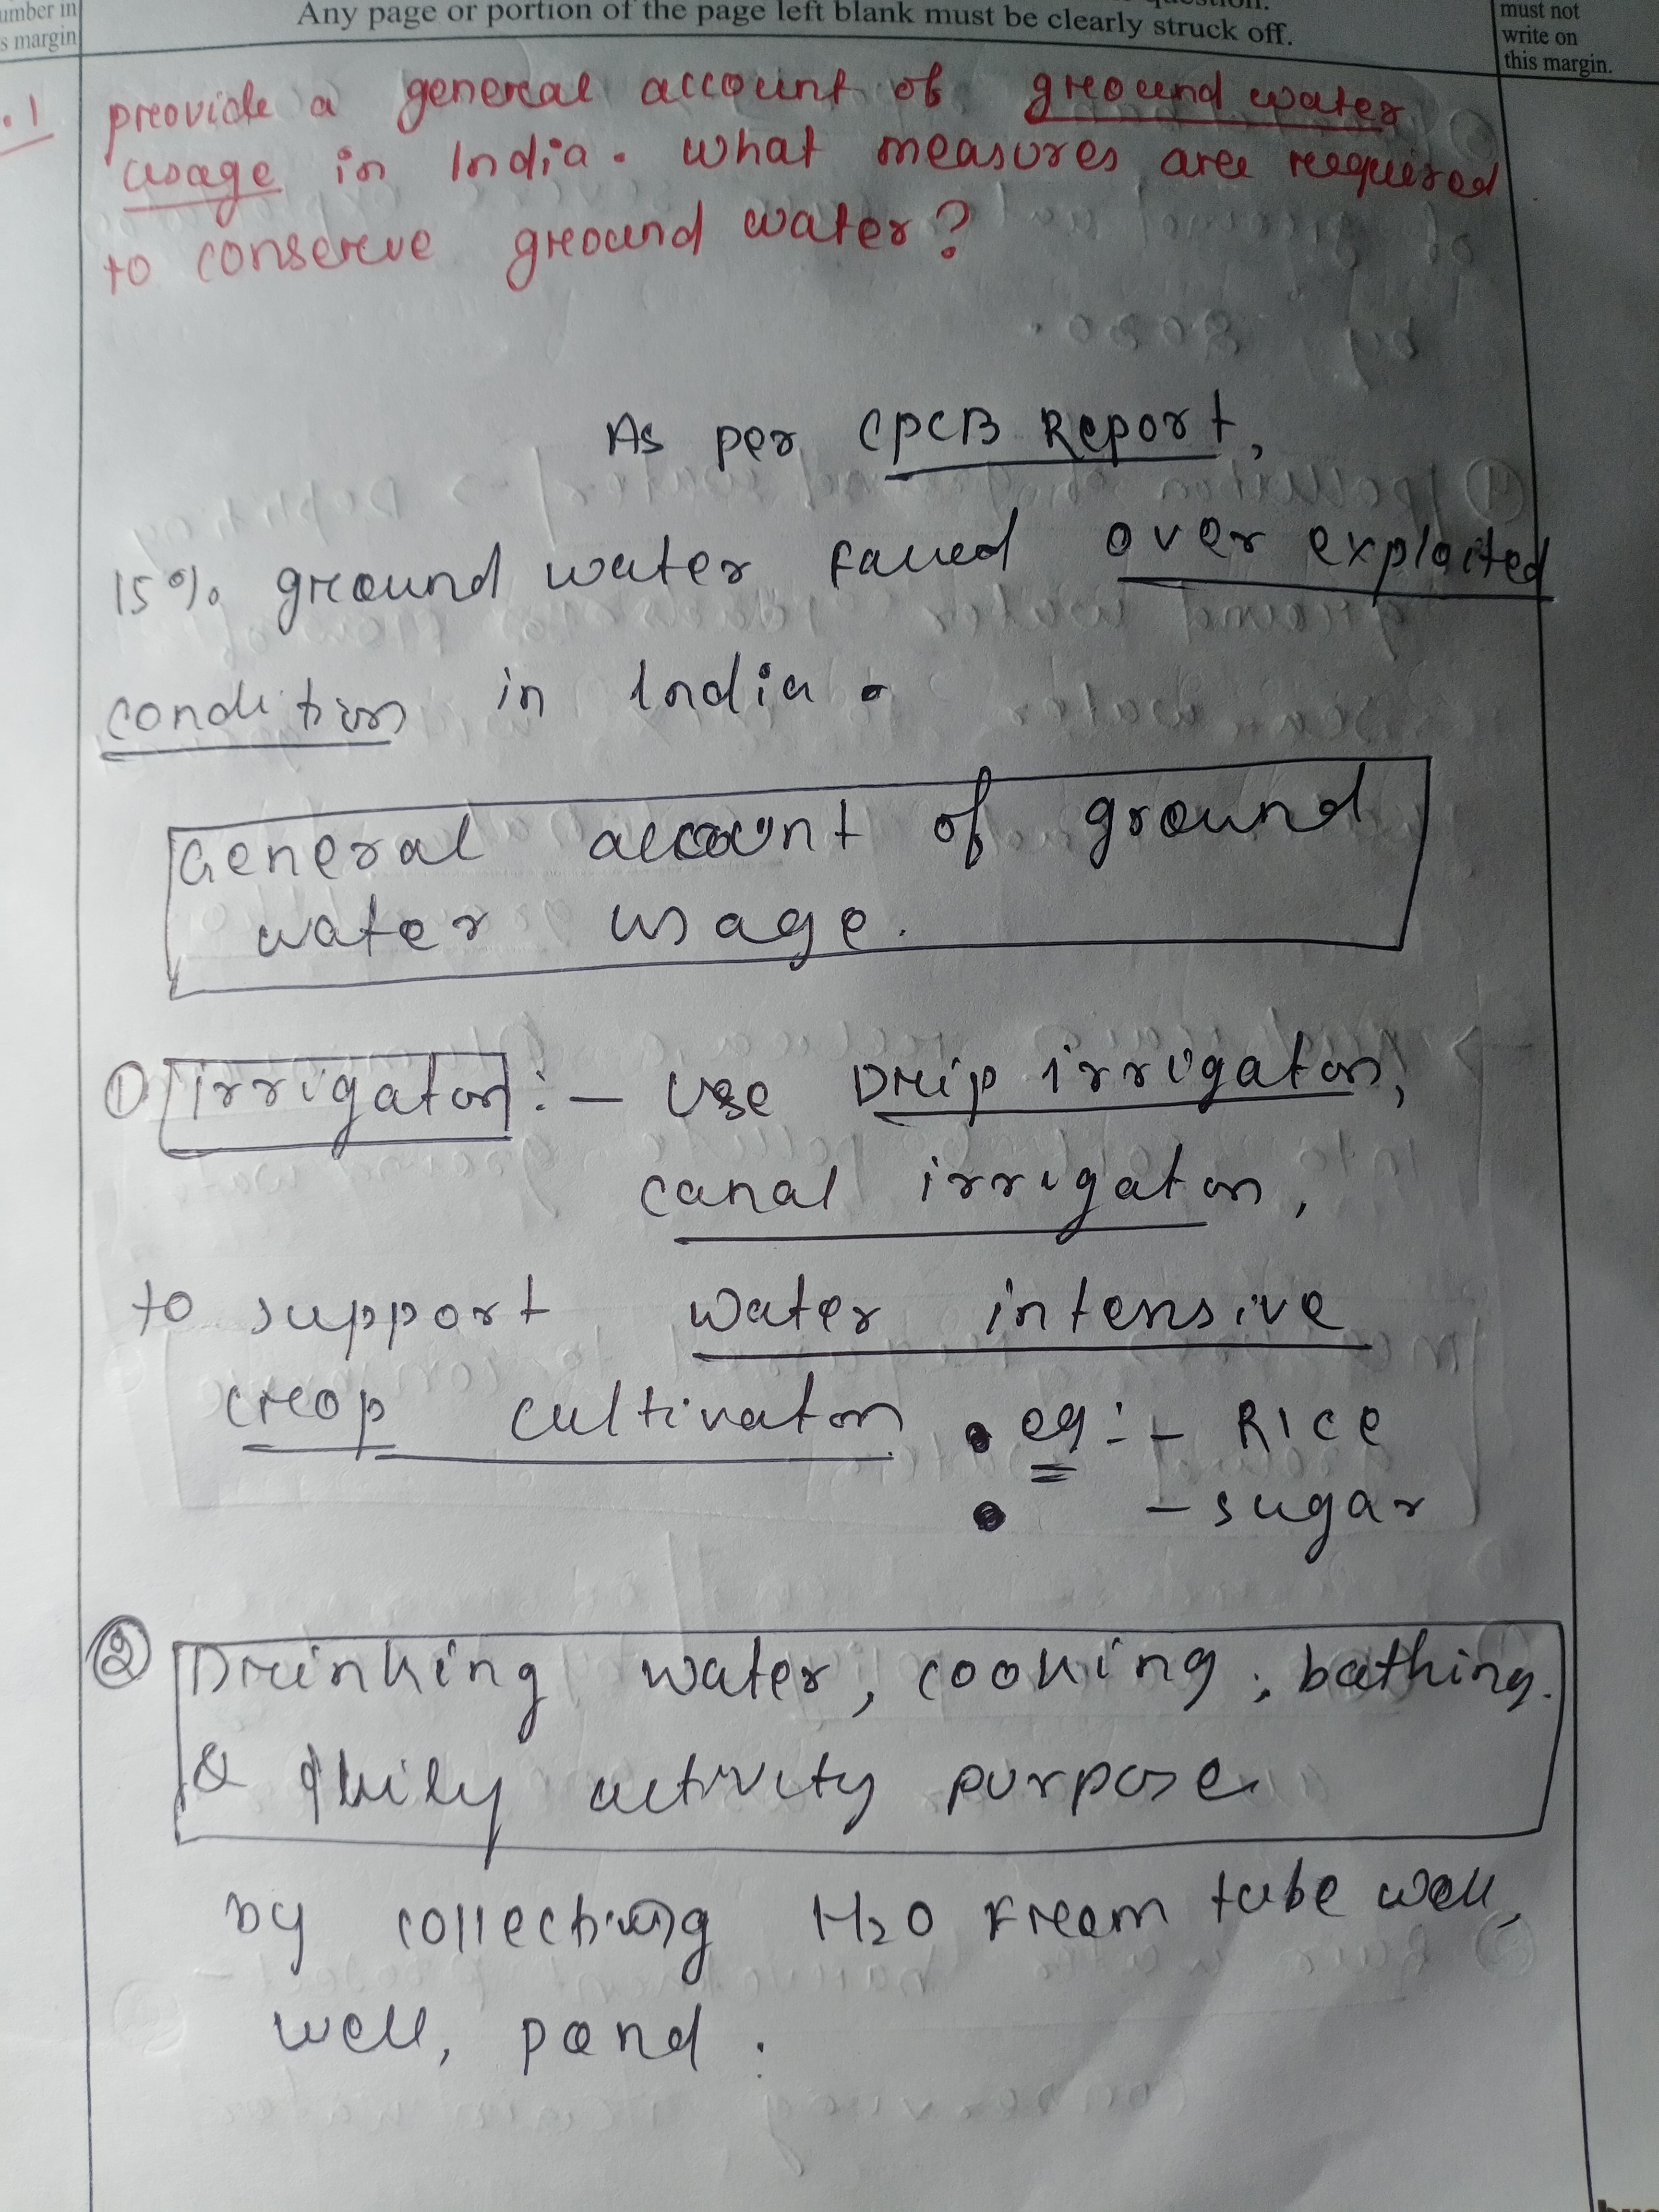 umber in
s margin
Any page or portion of the page left blank must be clearly struck off.
must not
write on
this margin.
.1 provide a general account of ground water
usage in India. What measures are required
to conserve ground water?
As per CPCB Report,
15% ground water faced over exploited
condition in India.
General account of ground
water usage.
① Irrigation :- Use Drip irrigation,
canal irrigation,
to support water intensive
crop cultivation. eg:- RICE
- sugar
② Drinking water, cooking, bathing.
& daily activity purpose
by collecting H2O from tube well,
well, pond.